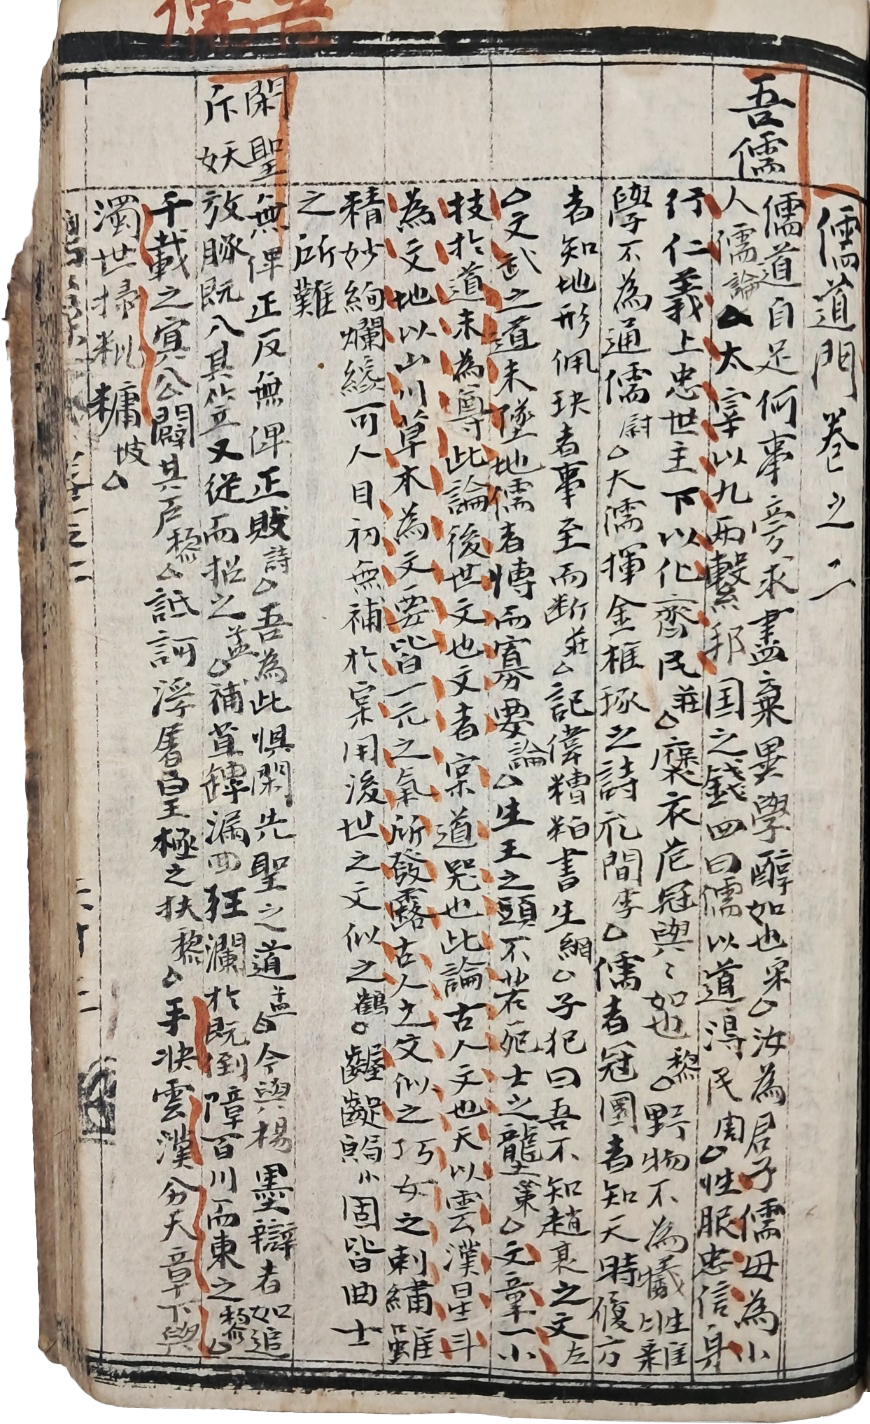 吾儒
儒道門 卷之二
吾儒
儒道自足何事旁求盡棄異學醇如也宋汝為君子儒毋為小
人儒論太宰以九兩繫邦国之錢四曰儒以道淂民周性服忠信身
行仁義上忠世主下以化齊民莊褒衣危冠與〻如也黎野物不為犧牲雜
學不為通儒尉大儒揮金椎琢之詩礼間李儒者冠圜者知天時履方
者知地形佩玦者事至而断莊記偉糟粕書生網子犯曰吾不知趙衰之文左
文武之道未墜地儒者愽而寡要論生王之頭不若死士之壟策文章一小
技於道未為尊此論後世文也文者寀道器也此論古人文也天以雲漢星斗
為文地以山川草木為文要皆一元之氣所發露古人之文似之巧女之刺繡雖
精妙絢爛緣可人目初無補於寀用後世之文似之鶴齷齪觸小固皆曲士
之所難
閑聖
斥妖
無俾正反無俾正敗詩吾為此惧閑先聖之道孟今與楊墨辯者如追
放豚既入其苙又從而招之孟補苴罅漏回狂瀾於既倒障百川而東之黎
千載之寘公闢其戶黎詆訶浮屠皇極之扶黎手抉雲漢分天章下與
濁世掃粃糠坡